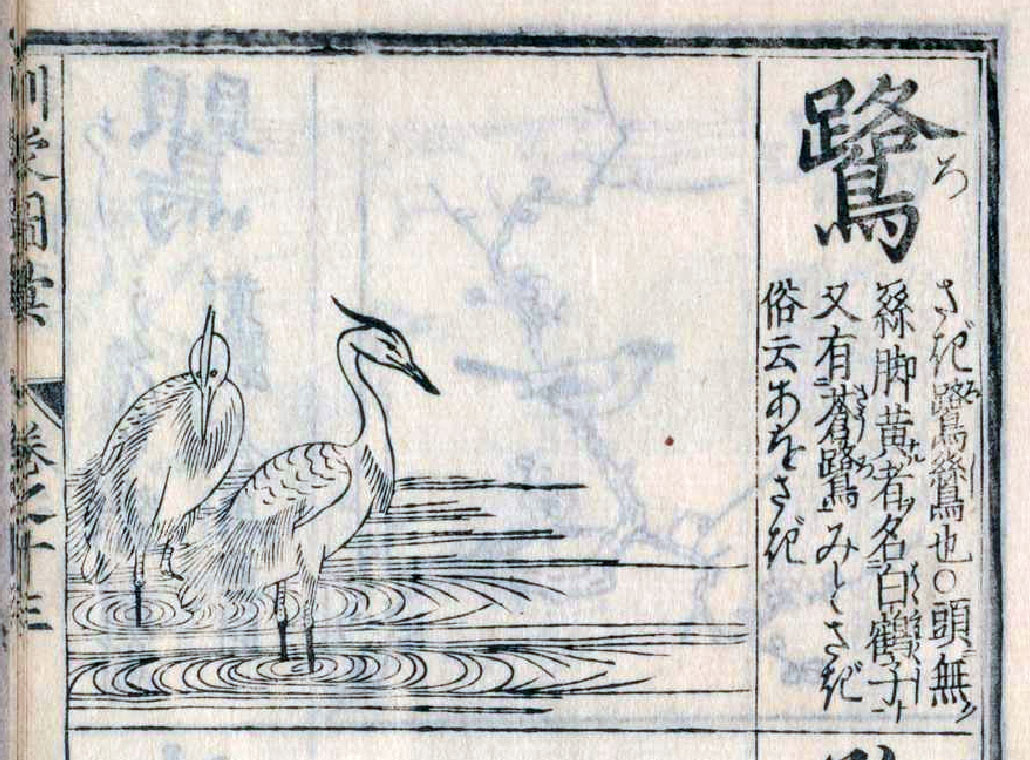 鷺 ろ
さぎ 鷺鷥也○頭無ㇾ
絲脚黄者名白鶴子
又有蒼鷺みとさぎ
俗云あをさぎ
訓蒙圖彙
巻之十三